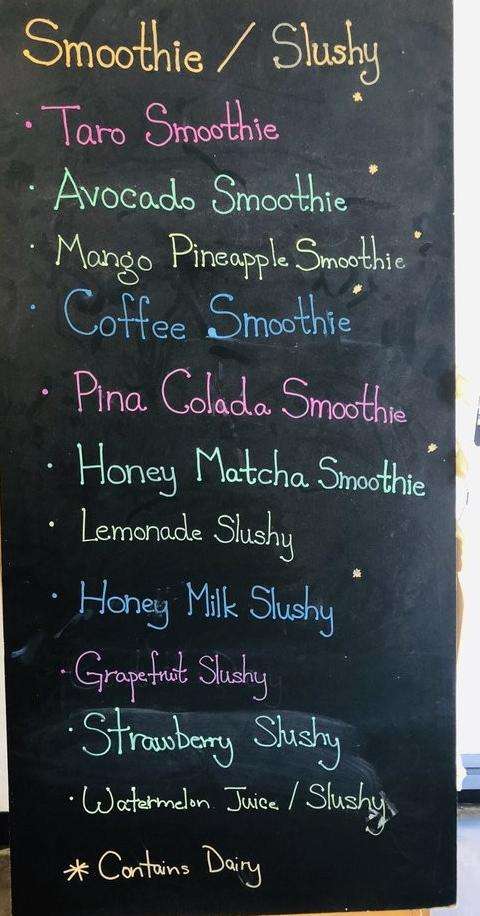 Smoothie / Slushy
· Taro Smoothie *
· Avocado Smoothie *
· Mango Pineapple Smoothie *
· Coffee Smoothie *
· Pina Colada Smoothie
· Honey Matcha Smoothie *
· Lemonade Slushy
· Honey Milk Slushy *
· Grapefruit Slushy
· Strawberry Slushy
· Watermelon Juice / Slushy
* Contains Dairy